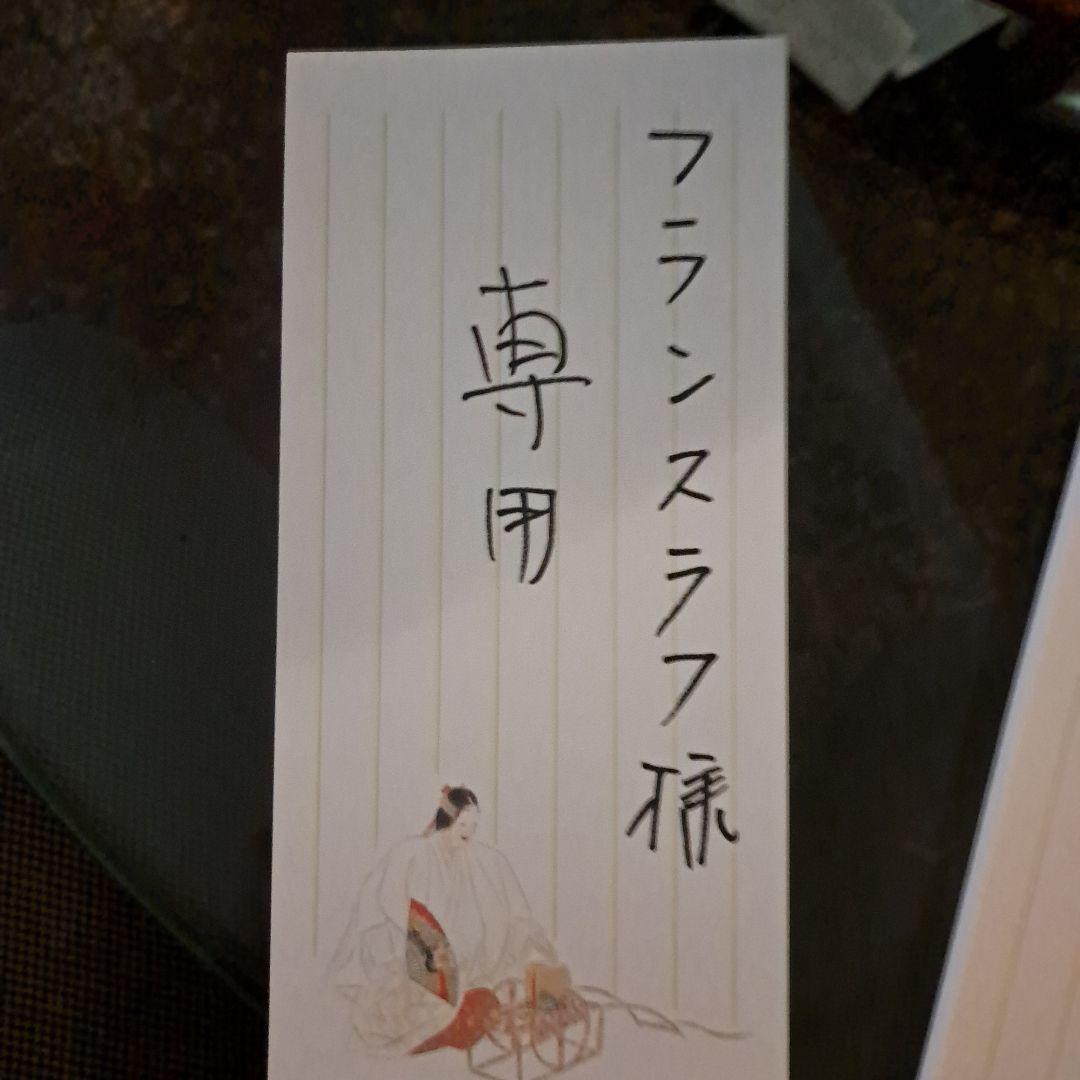 フランスラフ様
専用